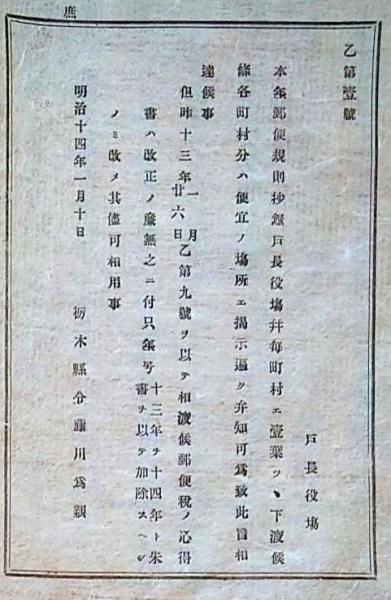 庶
乙第壹號
戸長役塲
本年郵便規則抄錄戸長役塲幷毎町村エ壹葉ツヽ下渡候
條各町村分ハ便宜ノ塲所エ揭示遍ク弁知可爲致此旨相
達候事
但昨十三年一月廿六日乙第九號ヲ以テ相渡候郵便税ノ心得
書ハ改正ノ廉無之ニ付只年号十三年ヲ十四年ト朱書ヲ以テ加除スヘシ
ノミ改メ其儘可相用事
明治十四年一月十日
栃木縣令藤川爲親